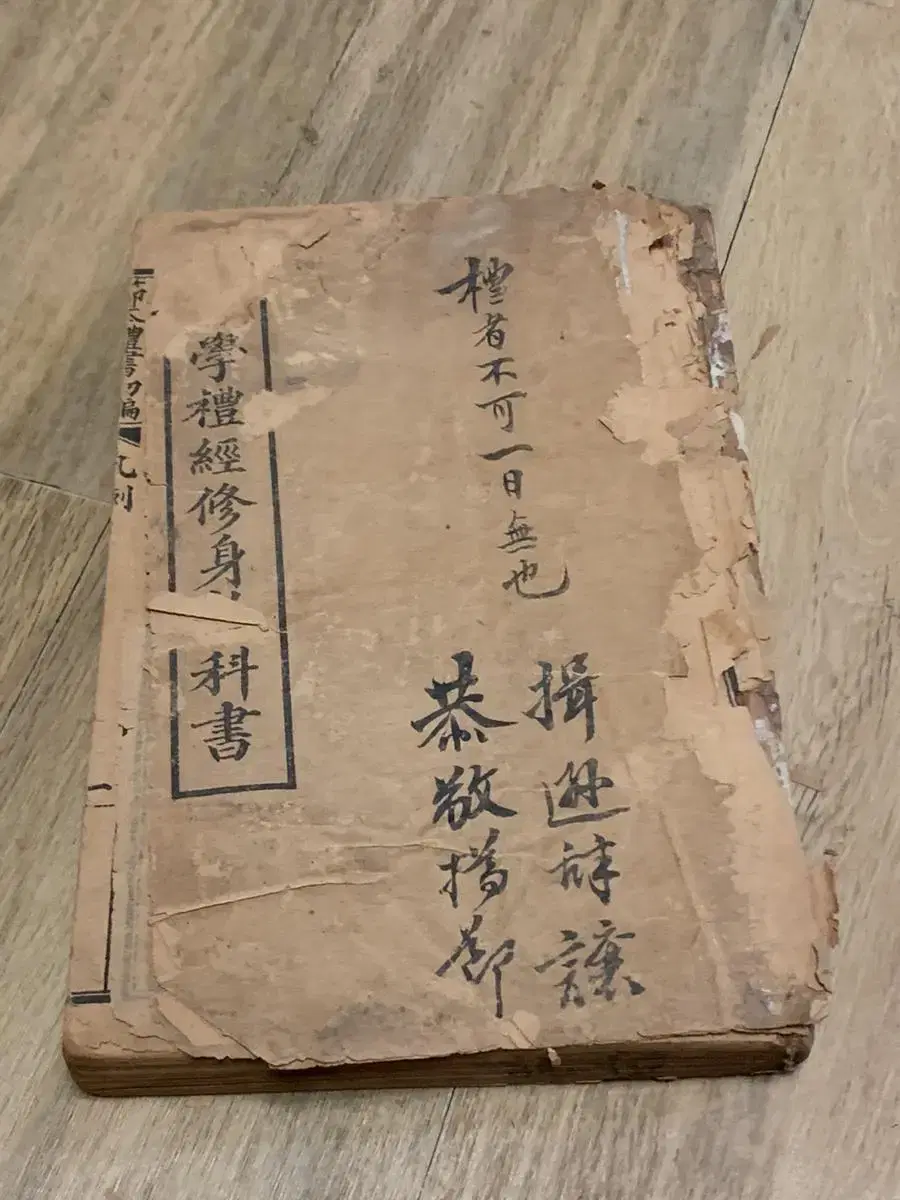 禮者不可一日無也
揖遜辭讓
恭敬撙節
學禮經修身科書
禮書初編
凡例